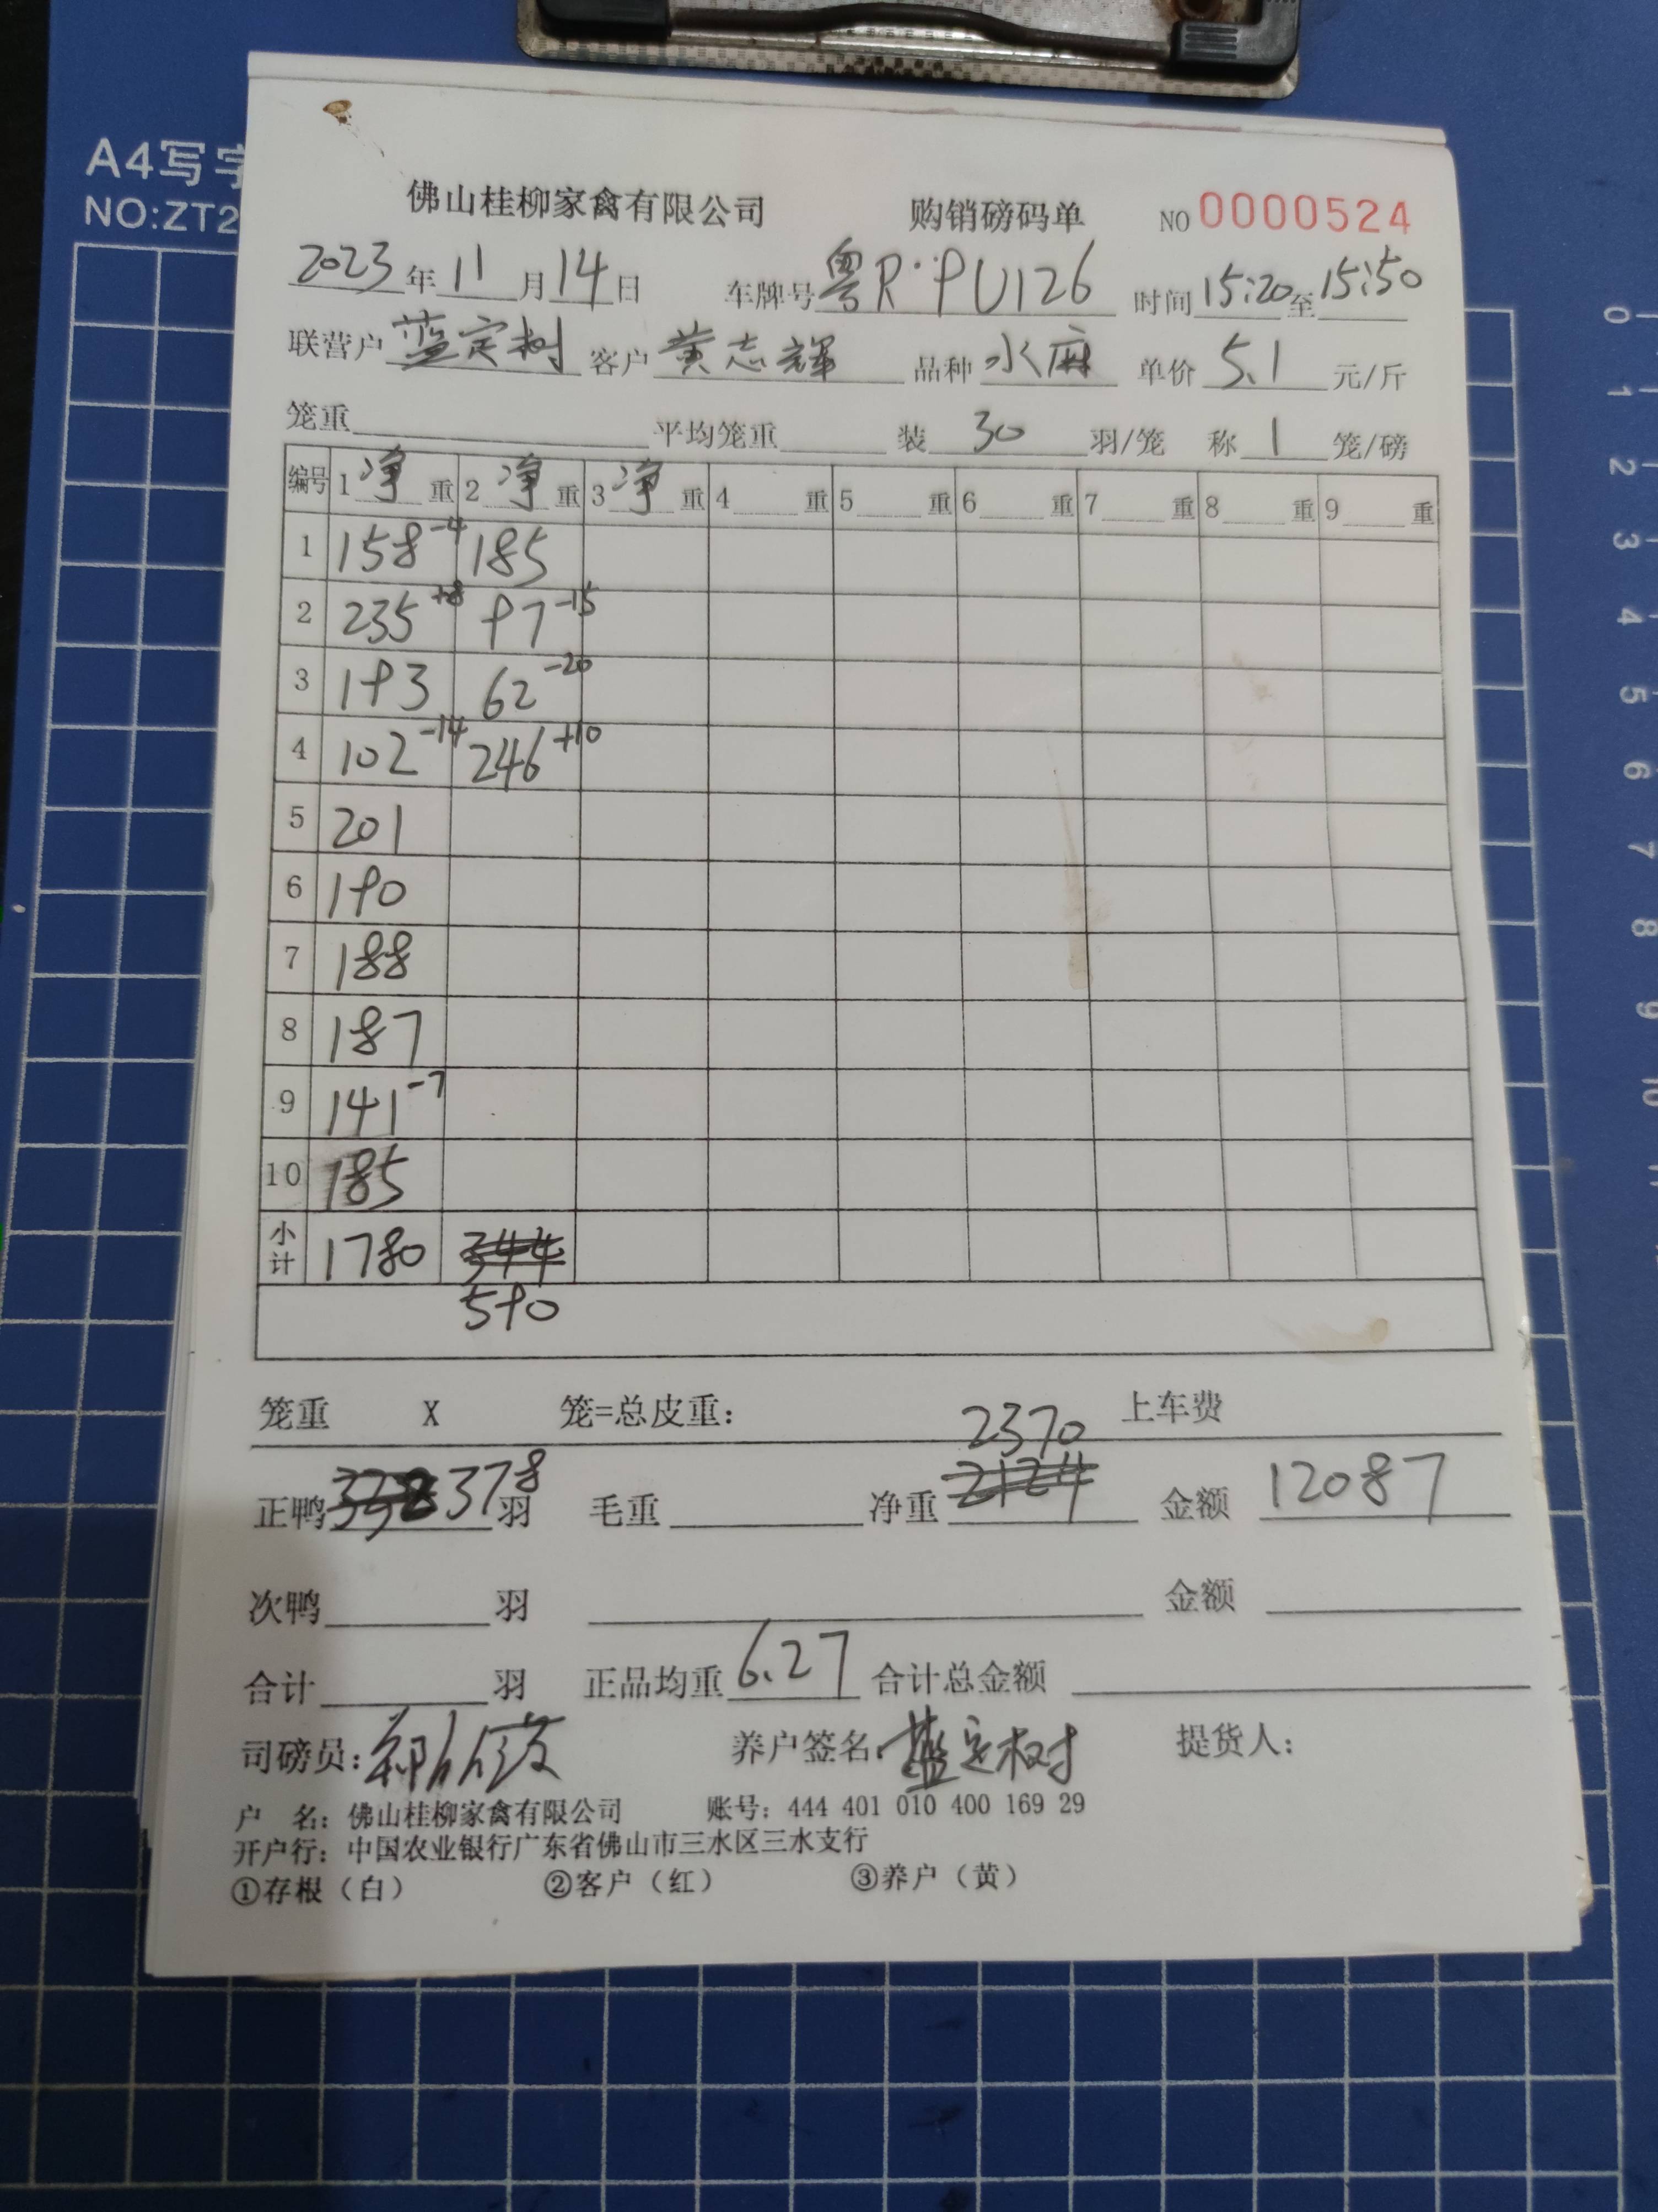 A4写字
NO:ZT2
佛山桂柳家禽有限公司 购销磅码单 NO 0000524
2023年11月14日 车牌号粤R·9U126 时间15:20至15:50
联营户蓝定树 客户黄志辉 品种水麻 单价5.1元/斤
笼重 平均笼重 装30羽/笼 称1笼/磅
编号 1净重 2净重 3净重 4重 5重 6重 7重 8重 9重
1 158-4 185
2 235+8 97-15
3 193 62-20
4 102-14 246+10
5 201
6 190
7 188
8 187
9 141-7
10 185
小计 1780 344
590
笼重 X 笼=总皮重: 2370 上车费
正鸭 378羽 毛重 净重2124 金额12087
次鸭 羽 金额
合计 羽 正品均重6.27 合计总金额
司磅员: 养户签名 蓝定树 提货人:
户 名: 佛山桂柳家禽有限公司 账号: 444 401 010 400 169 29
开户行: 中国农业银行广东省佛山市三水区三水支行
①存根（白） ②客户（红） ③养户（黄）
0
1
2
3
4
5
6
7
8
9
10
11